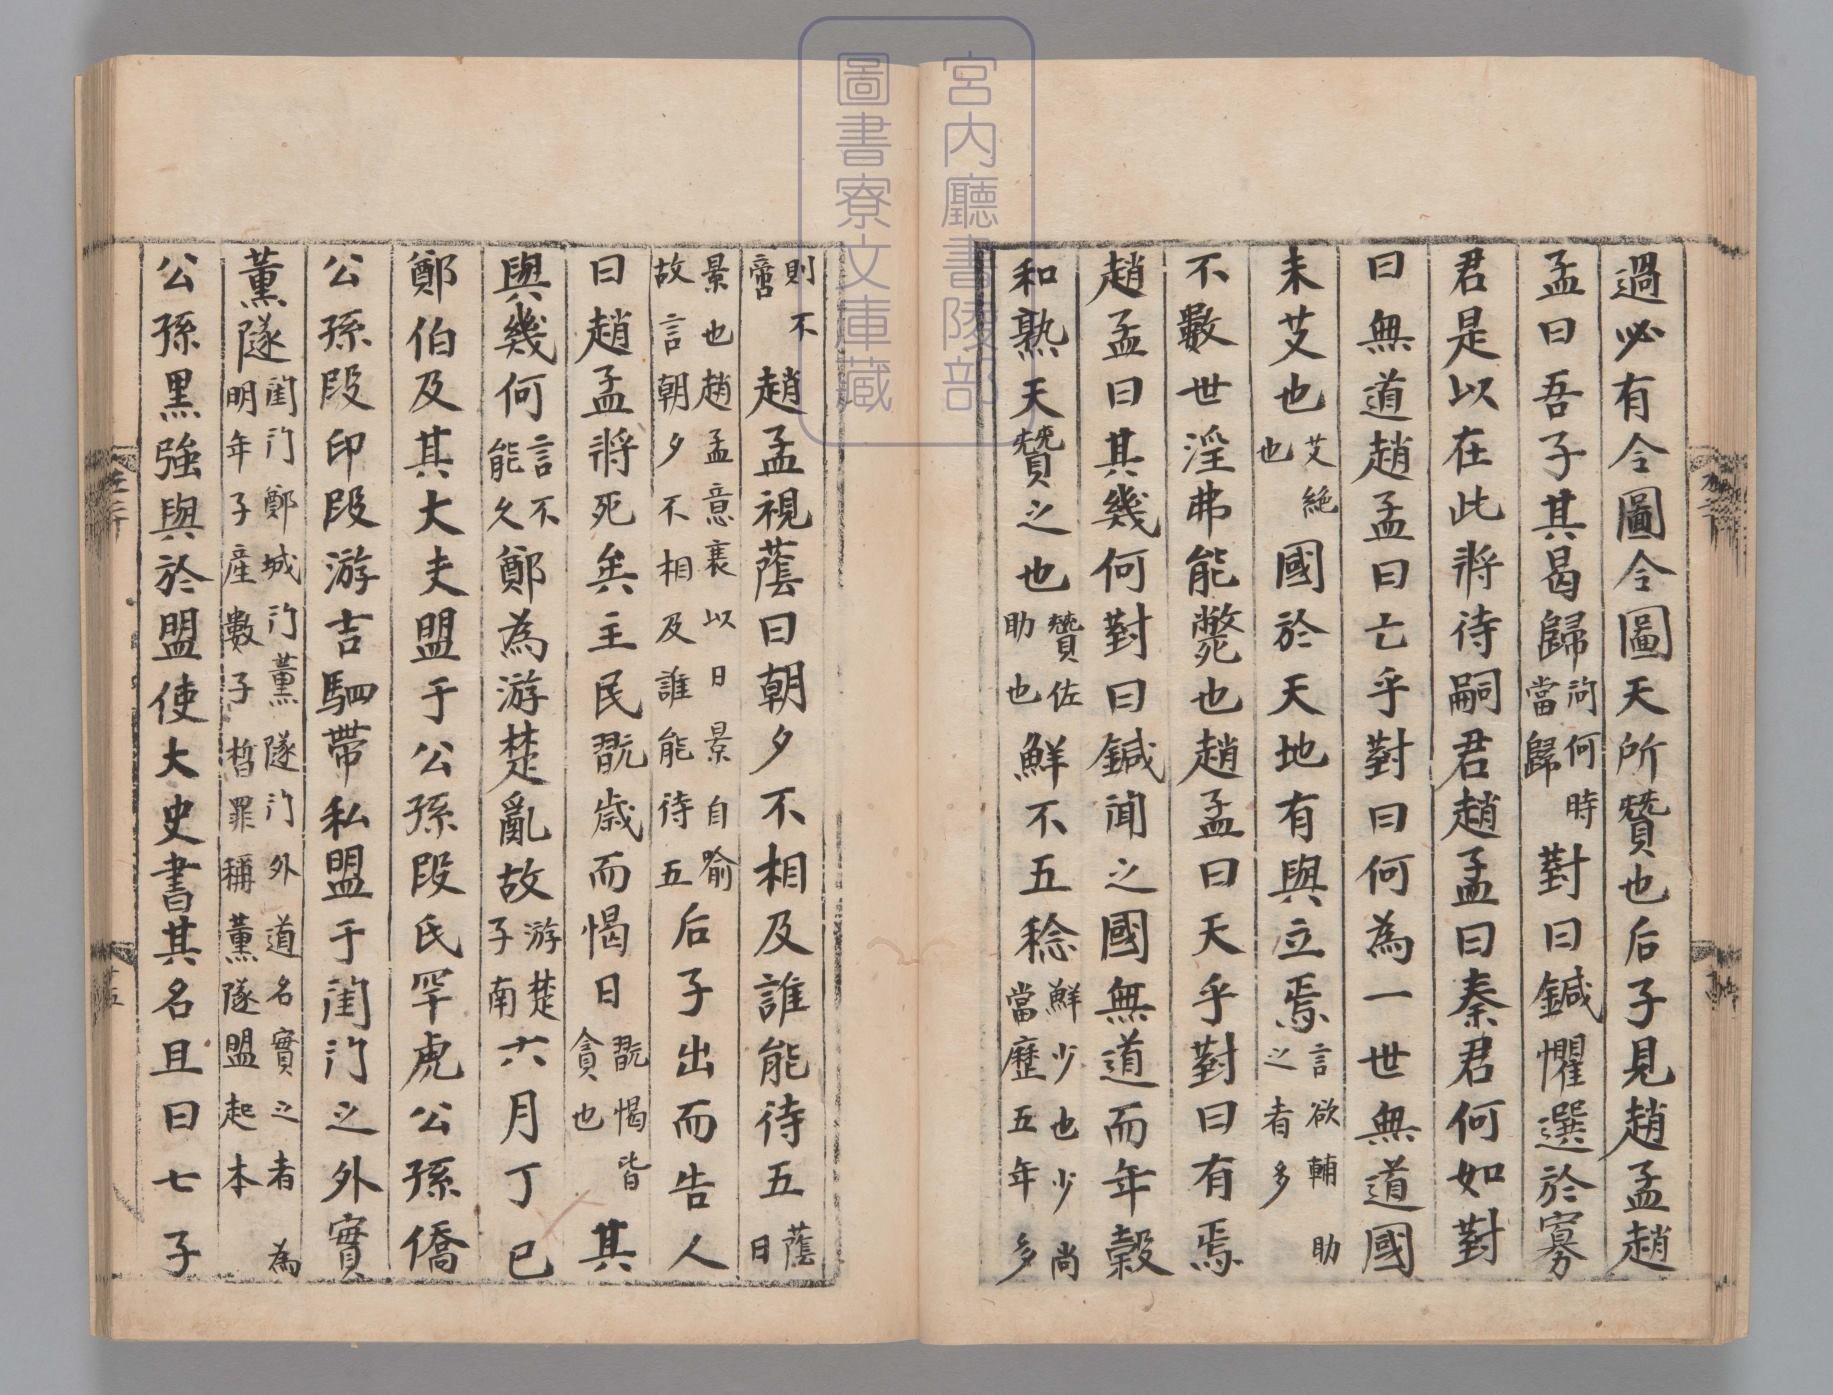 過必有令圖令圖天所贊也后子見趙孟趙
孟曰吾子其曷歸問何時當歸對曰鍼懼選於寡
君是以在此將待嗣君趙孟曰秦君何如對
曰無道趙孟曰亡乎對曰何為一世無道國
未艾也艾絕也國於天地有與立焉言欲輔助之者多
不數世淫弗能斃也趙孟曰天乎對曰有焉
趙孟曰其幾何對曰鍼聞之國無道而年穀
和熟天贊之也贊佐助也鮮不五稔鮮少也少尚當歷五年多
則不啻趙孟視蔭曰朝夕不相及誰能待五蔭日
景也趙孟意衰以日景自喻故言朝夕不相及誰能待五后子出而告人
曰趙孟將死矣主民翫歲而愒日翫愒皆貪也其
與幾何言不能久鄭為游楚亂故游楚子南六月丁巳
鄭伯及其大夫盟于公孫段氏罕虎公孫僑
公孫段印段游吉駟帶私盟于閨門之外實
薰隧閨門鄭城門薰隧門外道名實之者為明年子產數子晳罪稱薰隧盟起本
公孫黑強與於盟使大史書其名且曰七子
宮內廳書陵部
圖書寮文庫藏